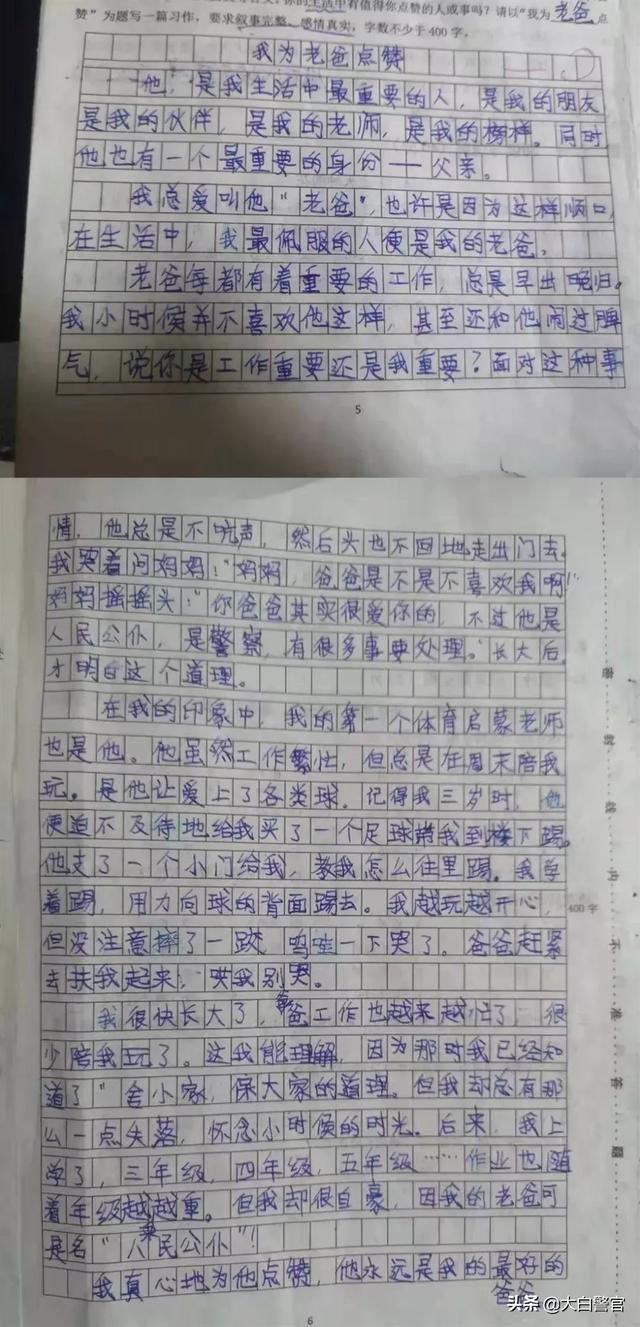 你的生活中有值得你点赞的人或事吗？请以“我为老爸点
赞”为题写一篇习作，要求叙事完整、感情真实，字数不少于 400 字。
我为老爸点赞
他，是我生活中最重要的人，是我的朋友
是我的伙伴，是我的老师，是我的榜样。同时
他也有一个最重要的身份——父亲。
我总爱叫他“老爸”，也许是因为这样顺口，
在生活中，我最佩服的人便是我的老爸。
老爸每都有着重要的工作，总是早出晚归。
我小时候并不喜欢他这样，甚至还和他闹过脾
气，说你是工作重要还是我重要？面对这种事
5
情，他总是不吭声，然后头也不回地走出门去。
我哭着问妈妈：“妈妈，爸爸是不是不喜欢我啊！”
妈妈摇摇头：“你爸爸其实很爱你的，不过他是
人民公仆，是警察，有很多事要处理。”长大后，
才明白这个道理。
在我的印象中，我的第一个体育启蒙老师
也是他。他虽然工作繁忙，但总是在周末陪我
玩。是他让爱上了各类球，记得我三岁时，他
便迫不及待地给我买了一个足球带我到楼下踢。
他支了一个小门给我，教我怎么往里踢。我学
着踢，用力向球的背面踢去。我越玩越开心，
400 字
但没注意摔了一跤，呜哇一下哭了。爸爸赶紧
去扶我起来，哄我别哭。
我很快长大了，爸爸工作也越来越忙了，很
少陪我玩了。这我能理解，因为那时我已经知
道了“舍小家，保大家的道理。但我却总有那
么一点失落，怀念小时候的时光。后来，我上
学了，三年级，四年级，五年级……作业也随
着年级越来越重。但我却很自豪，因我的老爸可
是名“人民公仆”！
我真心地为他点赞，他永远是我的最好的
爸爸
6
密封线内不准答题
头条 @大白警官